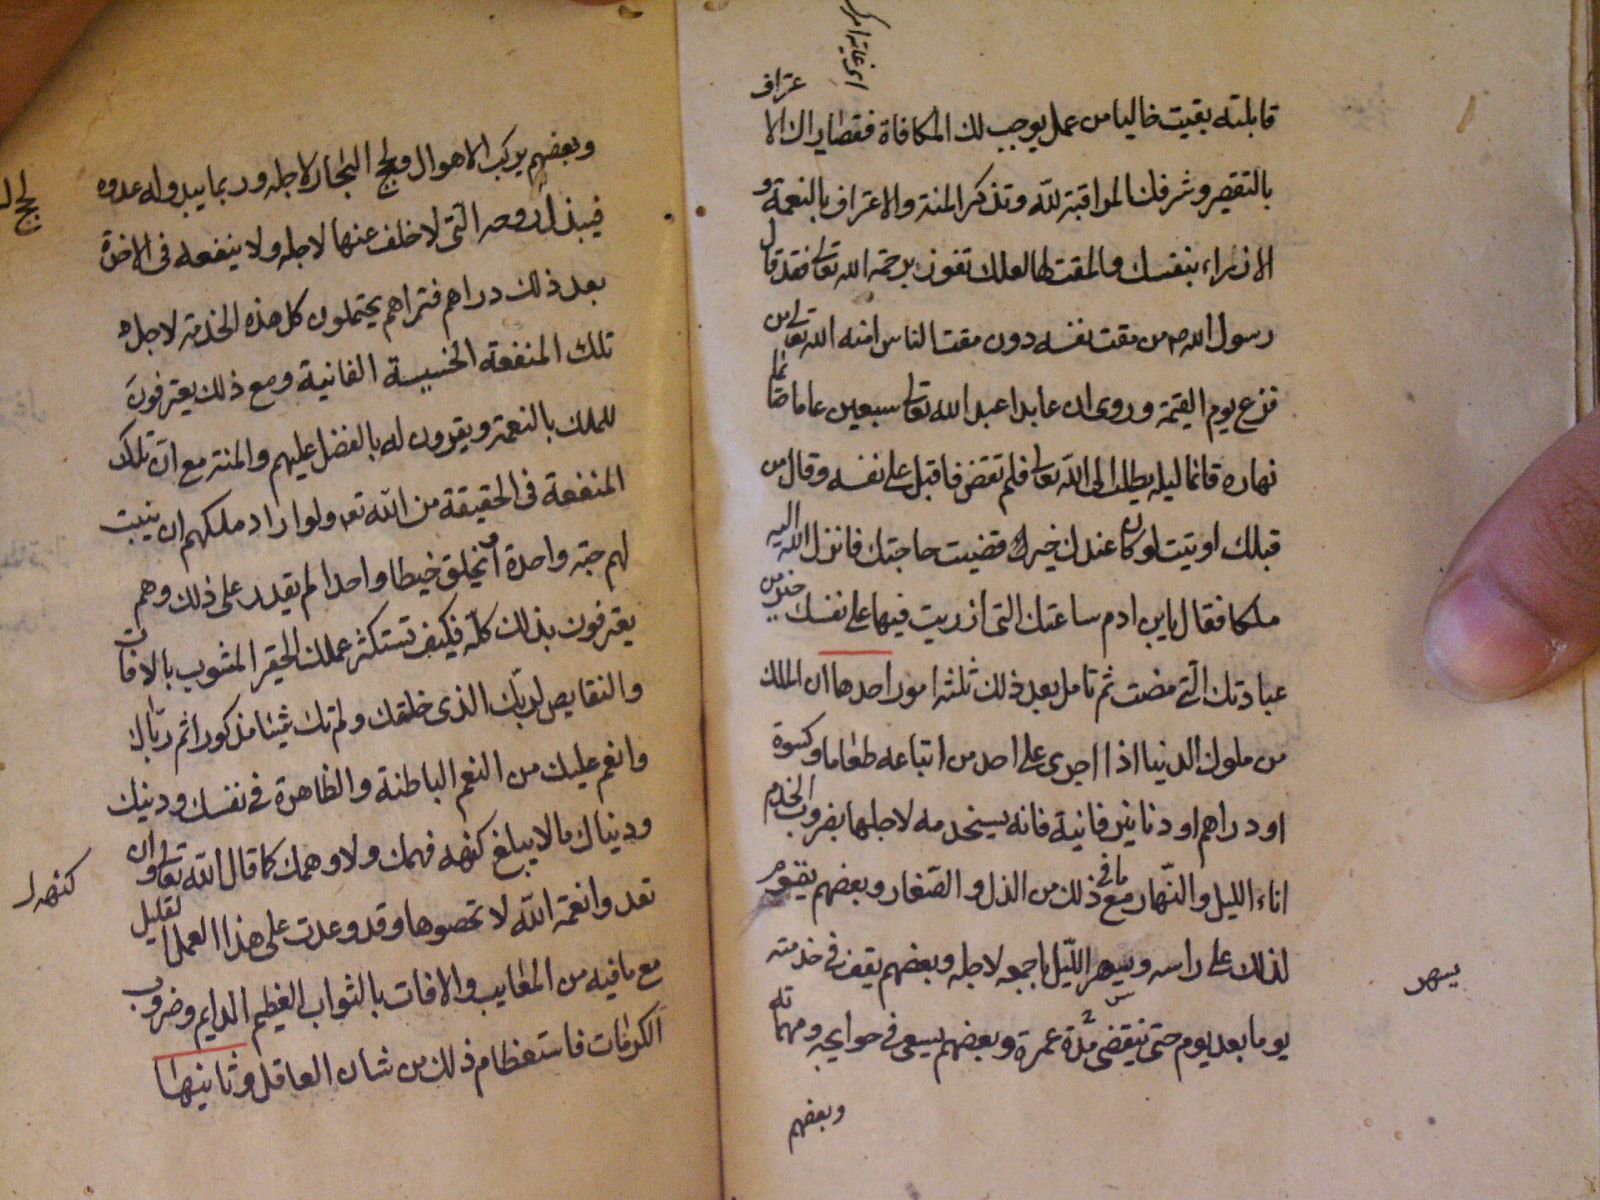 اى غاية امرك
عتراف
قابلته بقيت خاليا من عمل يوجب لك المكافاة فقصاراك الا
بالتقصير وشرفك المراقبة لله وتذكر المنة والاعتراف بالنعمة و
الازراء بنفسك والمقت لها لعلك تفوز برحمة الله تعالى فقد قال
رسول الله ص من مقت نفسه دون مقت الناس امنه الله تعالى من
فزع يوم القيمة وروى ان عابدا عبد الله تعالى سبعين عاما صائما
نهاره قائما ليله يطلب الى الله تعالى فلم تقض فاقبل على نفسه وقال من
قبلك اوتيت لو كان عندك خير قضيت حاجتك فانزل الله اليه
ملكا فقال يا بن ادم ساعتك التى ازريت فيها على نفسك خير من
عبادتك التى مضت ثم تامل بعد ذلك ثلثة امور احدها ان الملك
من ملوك الدنيا اذا اجرى على احد من اتباعه طعاما وكسوة
او دراهم او دنانير فانية فانه يستخدمه لاجلها بضروب الخدم
اناء الليل والنهار مع ما فى ذلك من الذل والصغار وبعضهم يقوم
لذلك على راسه ويسهر الليل باجمعه لاجله وبعضهم يقف فى خدمته
يسهر
يوما بعد يوم حتى ينقضى مدة عمره وبعضهم يسعى فى حوايجه ومهماته
وبعضهم
وبعضهم يركب الاهوال ولجج البحار لاجله وربما يبدو له عدوه
فيبذل روحه التى لا خلف عنها لاجله ولا ينفعه فى الاخرة
بعد ذلك دراهم فتراهم يحتملون كل هذه الخدمة لاجل
تلك المنفعة الخسيسة الفانية ومع ذلك يعترفون
للملك بالنعمة ويقرون له بالفضل عليهم والمنة مع ان تلك
المنفعة فى الحقيقة من الله تعه ولو اراد ملكهم ان ينبت
لهم حبة واحدة او يخلق خيطا واحدا لم يقدر على ذلك وهم
يعترفون بذلك كله فكيف تستكثر عملك الحقير المشوب بالافات
والنقايص لربك الذى خلقك ولم تك شيئا مذكورا ثم رباك
وانعم عليك من النعم الباطنة والظاهرة فى نفسك ودينك
ودنياك ما لا يبلغ كنهه فهمك ولا وهمك كما قال الله تعالى وان
كنهه
تعدوا نعمة الله لا تحصوها وقد وعدت على هذا العمل القليل
مع ما فيه من المعايب والافات بالثواب العظيم الدايم وضروب
الكرامات فاستعظام ذلك من شان العاقل وثانيها